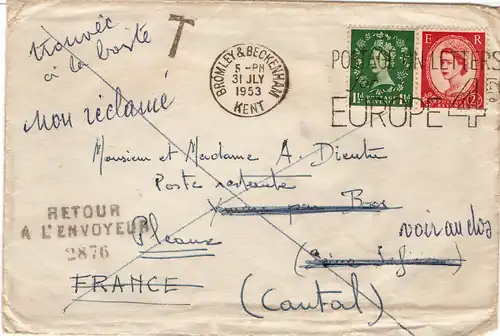 trouvée
à la boîte
T
BROMLEY & BECKENHAM
5 - PM
31 JLY
1953
KENT
POSTAGE ON LETTERS
EUROPE 4
1½D POSTAGE 1½D
E R
2½
non réclamé
Monsieur et Madame A. Dieutu
Poste restante
par
RETOUR
A L'ENVOYEUR
2876
Pleaux
voir au dos
(Seine Inférieure)
FRANCE
(Cantal)